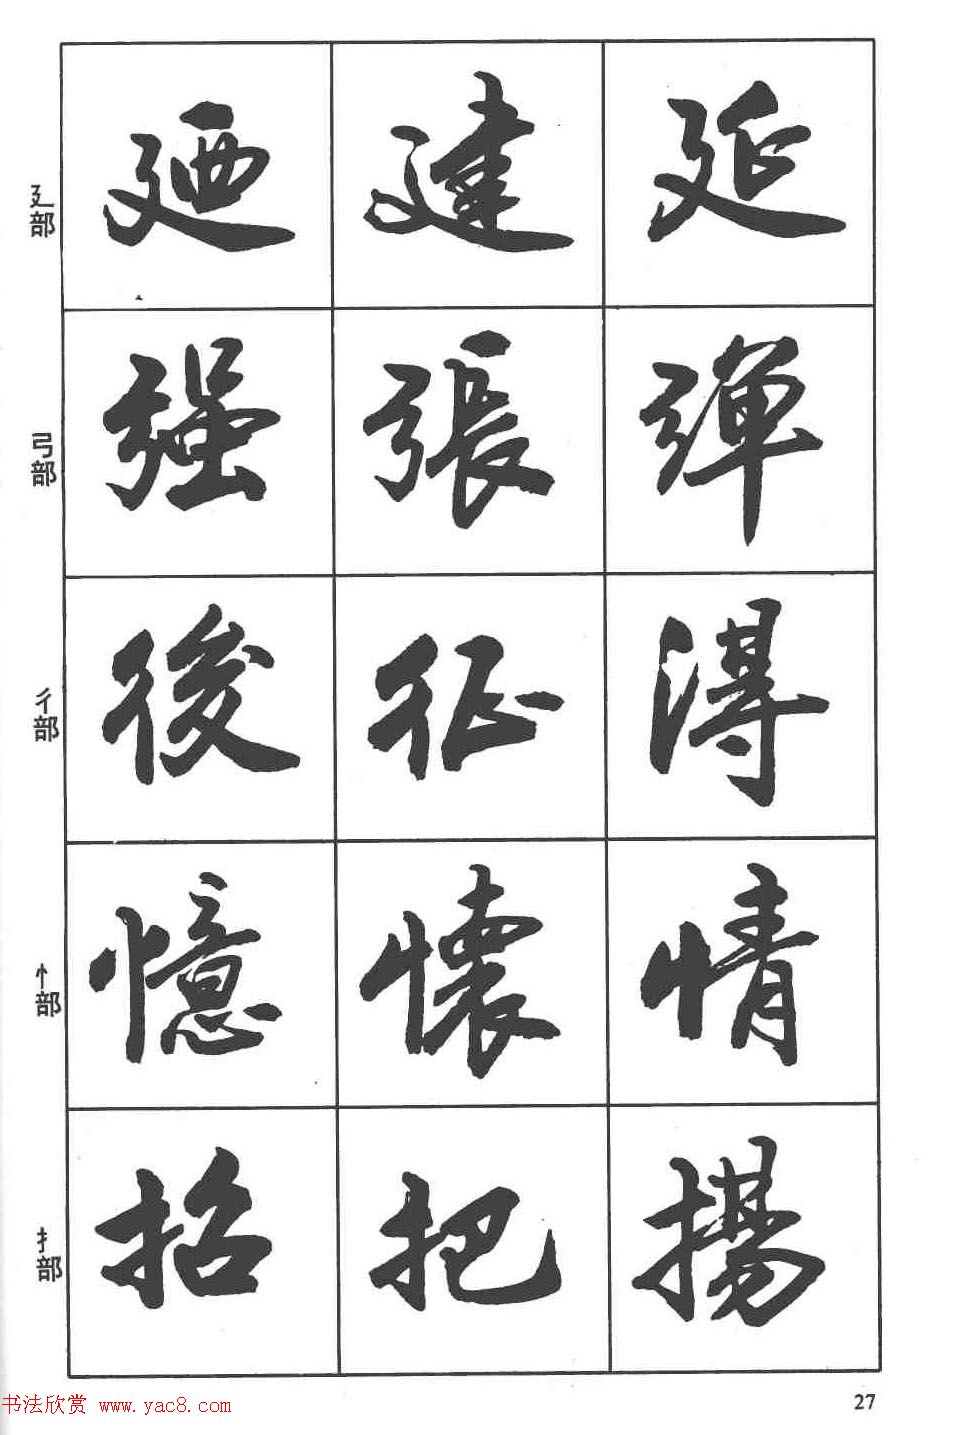 廴部
廼 建 延
弓部
强 張 彈
彳部
後 征 得
忄部
憶 懷 情
扌部
招 把 揚
书法欣赏 www.yac8.com
27